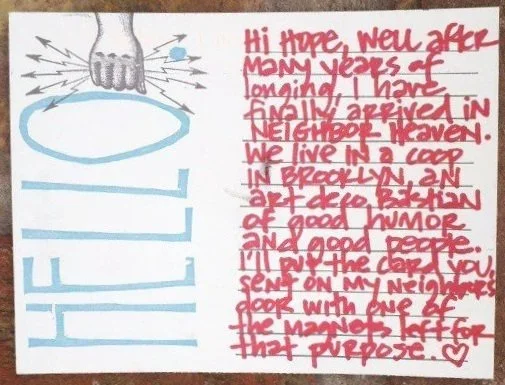 HELLO
Hi Hope, Well after
Many years of
longing, I have
finally arrived in
NEIGHBOR Heaven.
We live in a coop
in BROOKLYN, an
art deco, Bastian
of good humor
and good people.
I'll put the card you,
sent on my neighbors
door with one of
the magnets left for
that purpose.